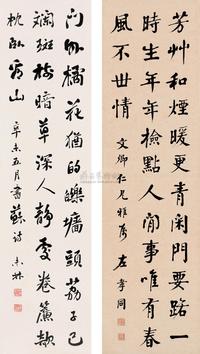 芳艸和煙暖更青闲門要路一
時生年年檢點人間事唯有春
風不世情 文卿仁兄雅屬 左孝同
门外橘花猶的皪墻頭荔子已
斕斑樹暗草深人靜處卷簾欹
枕卧看山 辛未五月書蘇詩